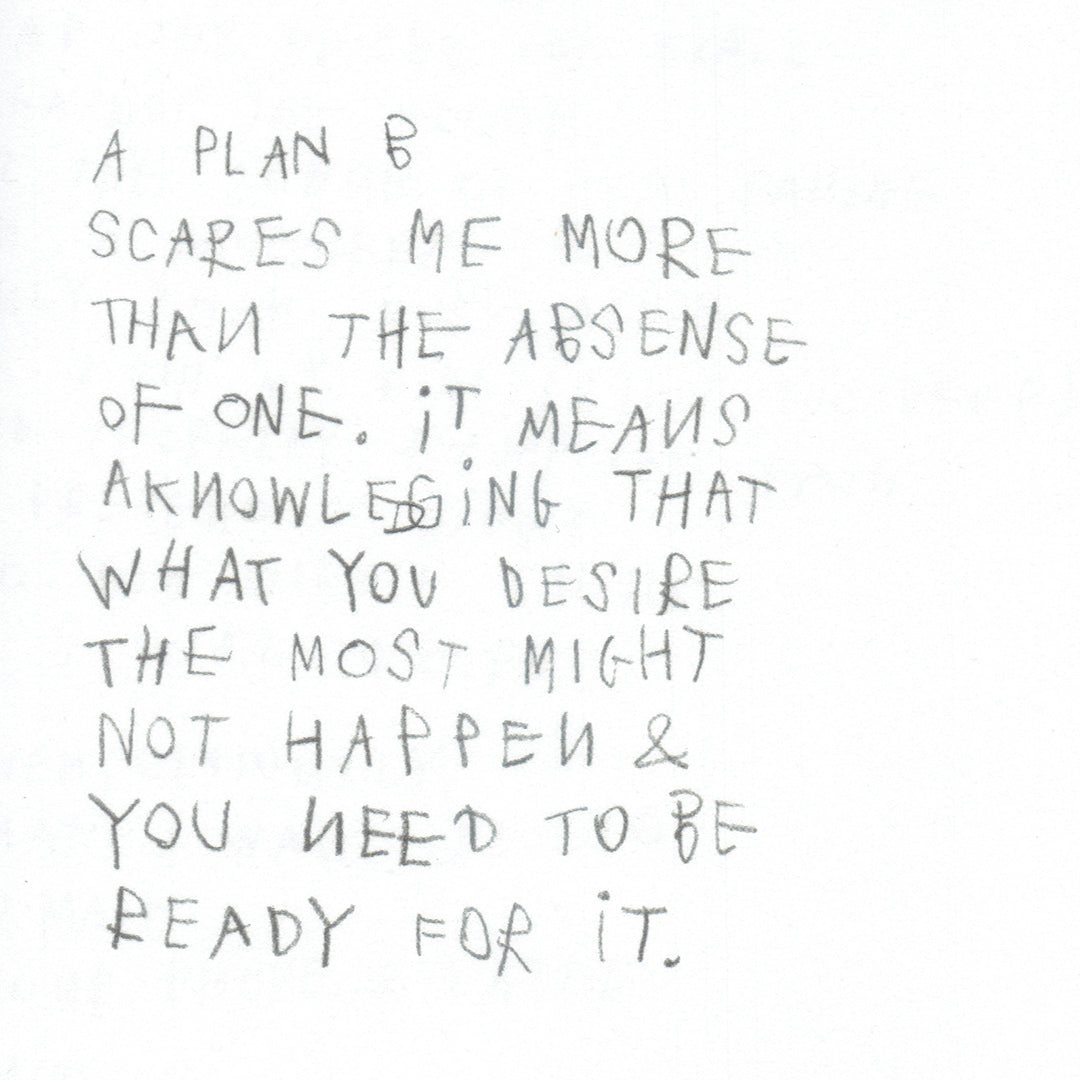 A PLAN B
SCARES ME MORE
THAN THE ABSENSE
OF ONE. iT MEANS
AKNOWLEDGiNG THAT
WHAT YOU DESIRE
THE MOST MIGHT
NOT HAPPEN &
YOU NEED TO BE
READY FOR iT.